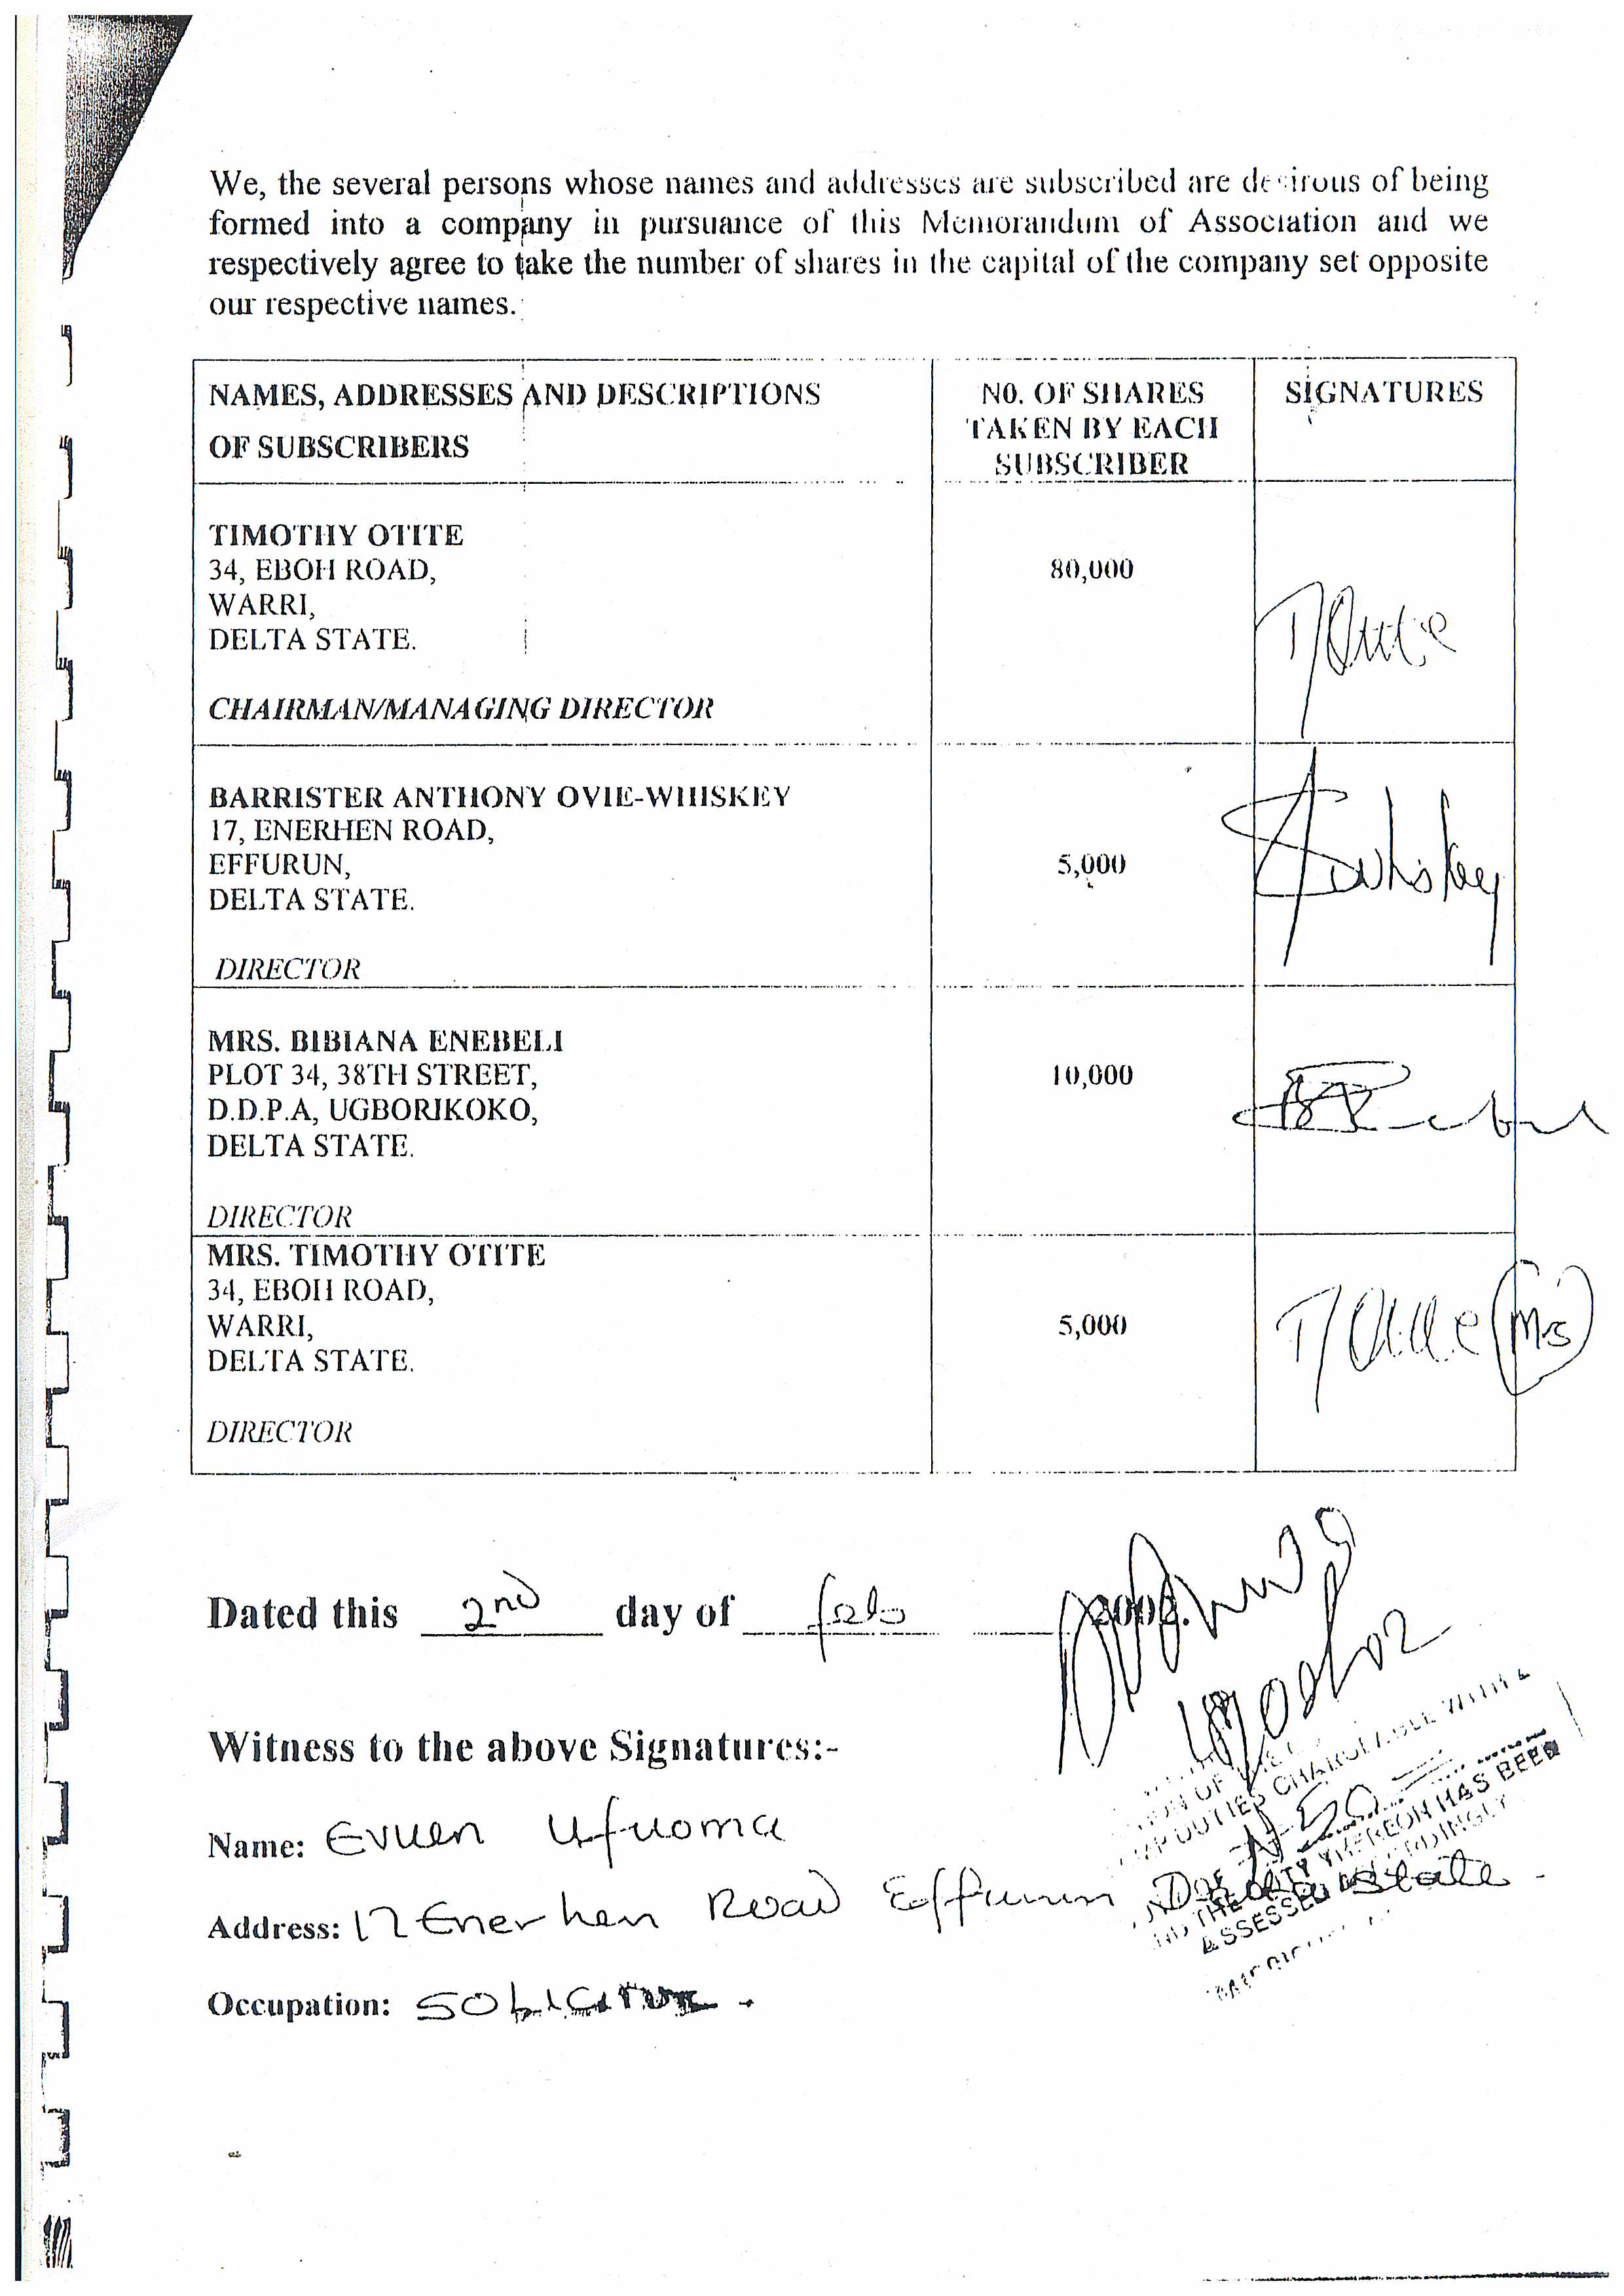 We, the several persons whose names and addresses are subscribed are desirous of being
formed into a company in pursuance of this Memorandum of Association and we
respectively agree to take the number of shares in the capital of the company set opposite
our respective names.
NAMES, ADDRESSES AND DESCRIPTIONS
OF SUBSCRIBERS
NO. OF SHARES
TAKEN BY EACH
SUBSCRIBER
SIGNATURES
TIMOTHY OTITE
34, EBOH ROAD,
WARRI,
DELTA STATE.
CHAIRMAN/MANAGING DIRECTOR
80,000
BARRISTER ANTHONY OVIE-WHISKEY
17, ENERHEN ROAD,
EFFURUN,
DELTA STATE.
DIRECTOR
5,000
MRS. BIBIANA ENEBELI
PLOT 34, 38TH STREET,
D.D.P.A, UGBORIKOKO,
DELTA STATE.
DIRECTOR
10,000
MRS. TIMOTHY OTITE
34, EBOH ROAD,
WARRI,
DELTA STATE.
DIRECTOR
5,000
(Mrs)
Dated this 2nd day of feb 2002.
Witness to the above Signatures:-
Name: Evuen Ufuoma
Address: 17 Enerhen Road Effurun Delta State.
Occupation: SOLICITOR.
DUTIES CHARGEABLE WITH
N50
THE DUTY THEREON HAS BEEN
ASSESSED ACCORDINGLY